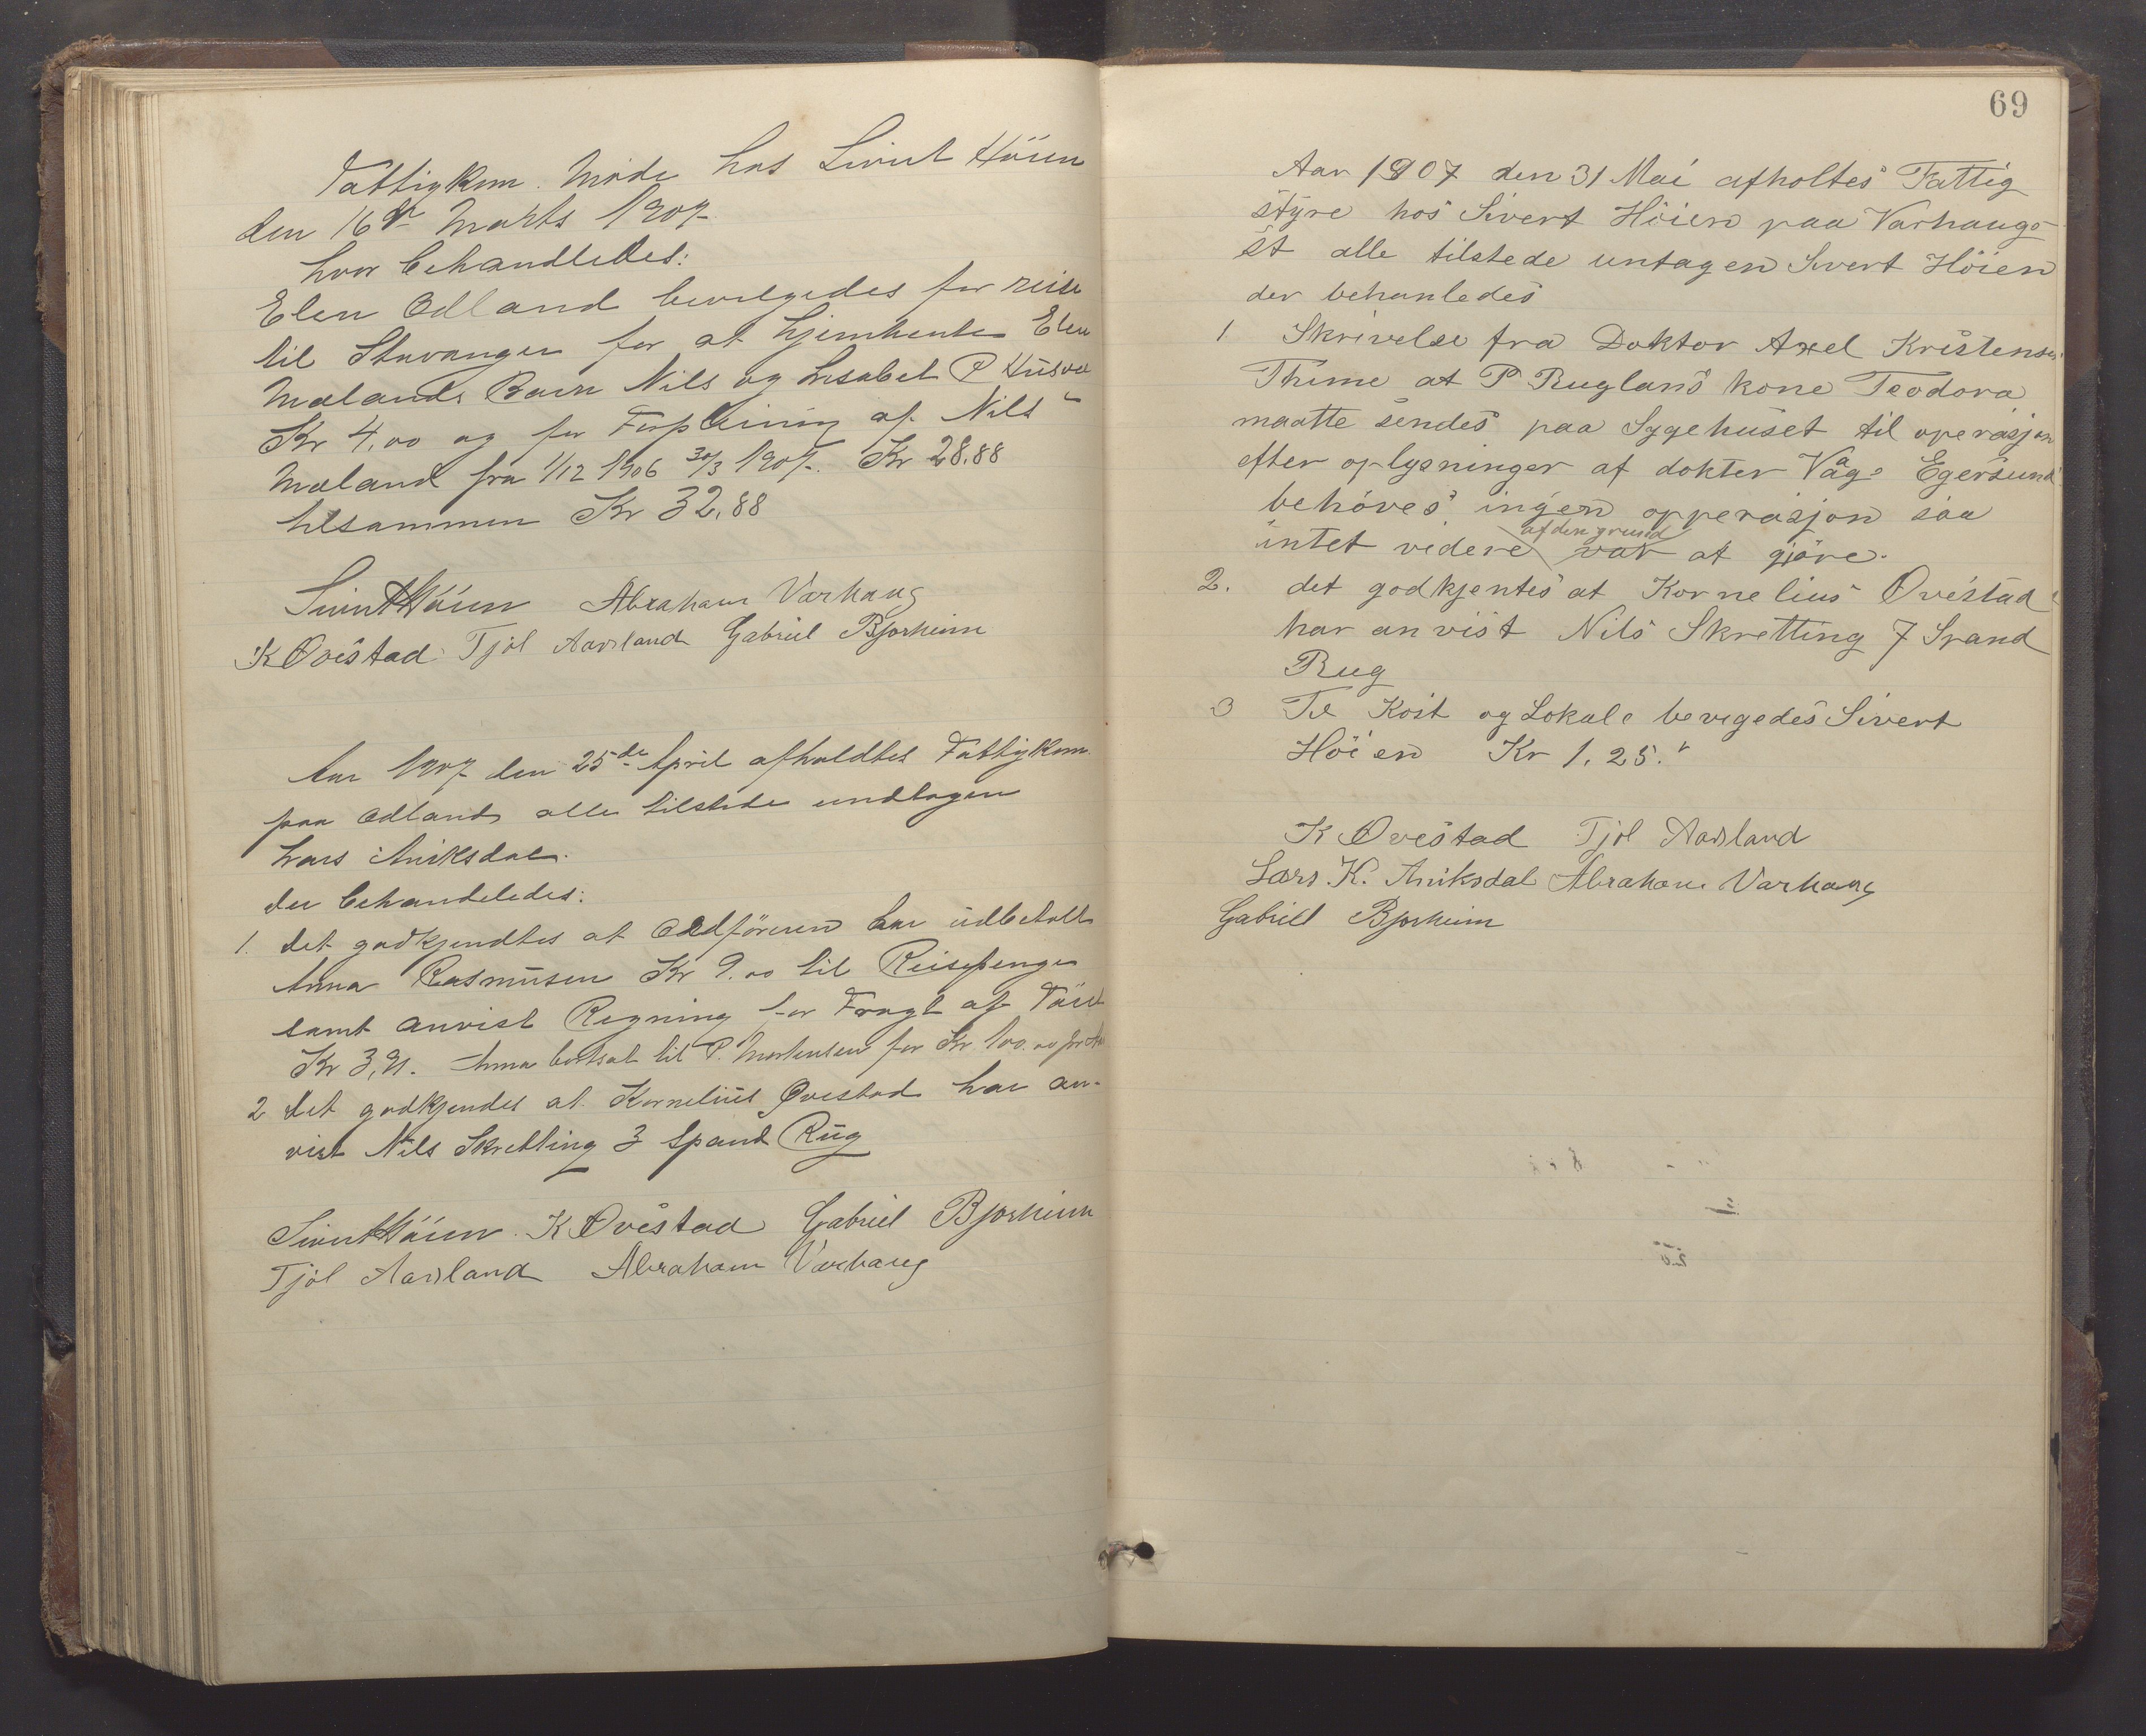 Fattigkom. Møde hos Sivert Höien
den 16de Marts 1907
hvor behandledes:
Elen Odland bevilgedes for reise
til Stavanger for at hjemhente Elen
Mælands Barn Nils og Lisabet P
Kr 4,00 og for Forpleining af Nils
Mæland fra 1/12 1906 30/3 1907. Kr 28.88
tilsammen Kr 32,88
Sivert Höien Abraham Varhaug
K Ovestad Tjöl Aarsland Gabriel Bjorheim
Aar 1907 den 25de April afholdtes Fattigkom.
paa Odland alle tilstede undtagen
Lars Aniksdal.
der behandledes:
1. det godkjendtes at Ordföreren har udbetalt
Anna Rasmüsen Kr 9.00 til Reisepenge
samt anvist Regning for Fragt af Töiet
Kr 3,91. Anna bortsat til P. Mortensen for Kr 100.00 pr Aar
2 det godkjendes at Kornelius Ovestad har an-
vist Nils Skretting 3 Spand Rüg
Sivert Höien. K Ovestad Gabriel Bjorheim
Tjöl Aarsland Abraham Varhaug
69
Aar 1907 den 31 Mai afholtes Fattig
styre hos Sivert Höien paa Varhaug-
st alle tilstede untagen Sivert Höien
der behanledes
1 Skrivelse fra Doktor Axel Kristensen
Thime at P Ruglans kone Teodora
maatte sendes paa Sygehuset til operasjon
efter oplysninger af dokter Vaage Egersund
behöves ingen opperasjon saa
af den grund
intet videre var at gjöre.
2. det godkjentes at Kornelius Ovestad
har anvist Nils Skretting 7 Spand
Rug
3 Til Kost og Lokale bevegedes Sivert
Höien Kr 1.25.
K Ovestad Tjöl Aarsland
Lars. K. Aniksdal Abraham Varhaug
Gabriel Bjorheim